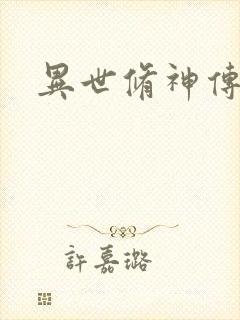 異世脩神傳
許嘉璐